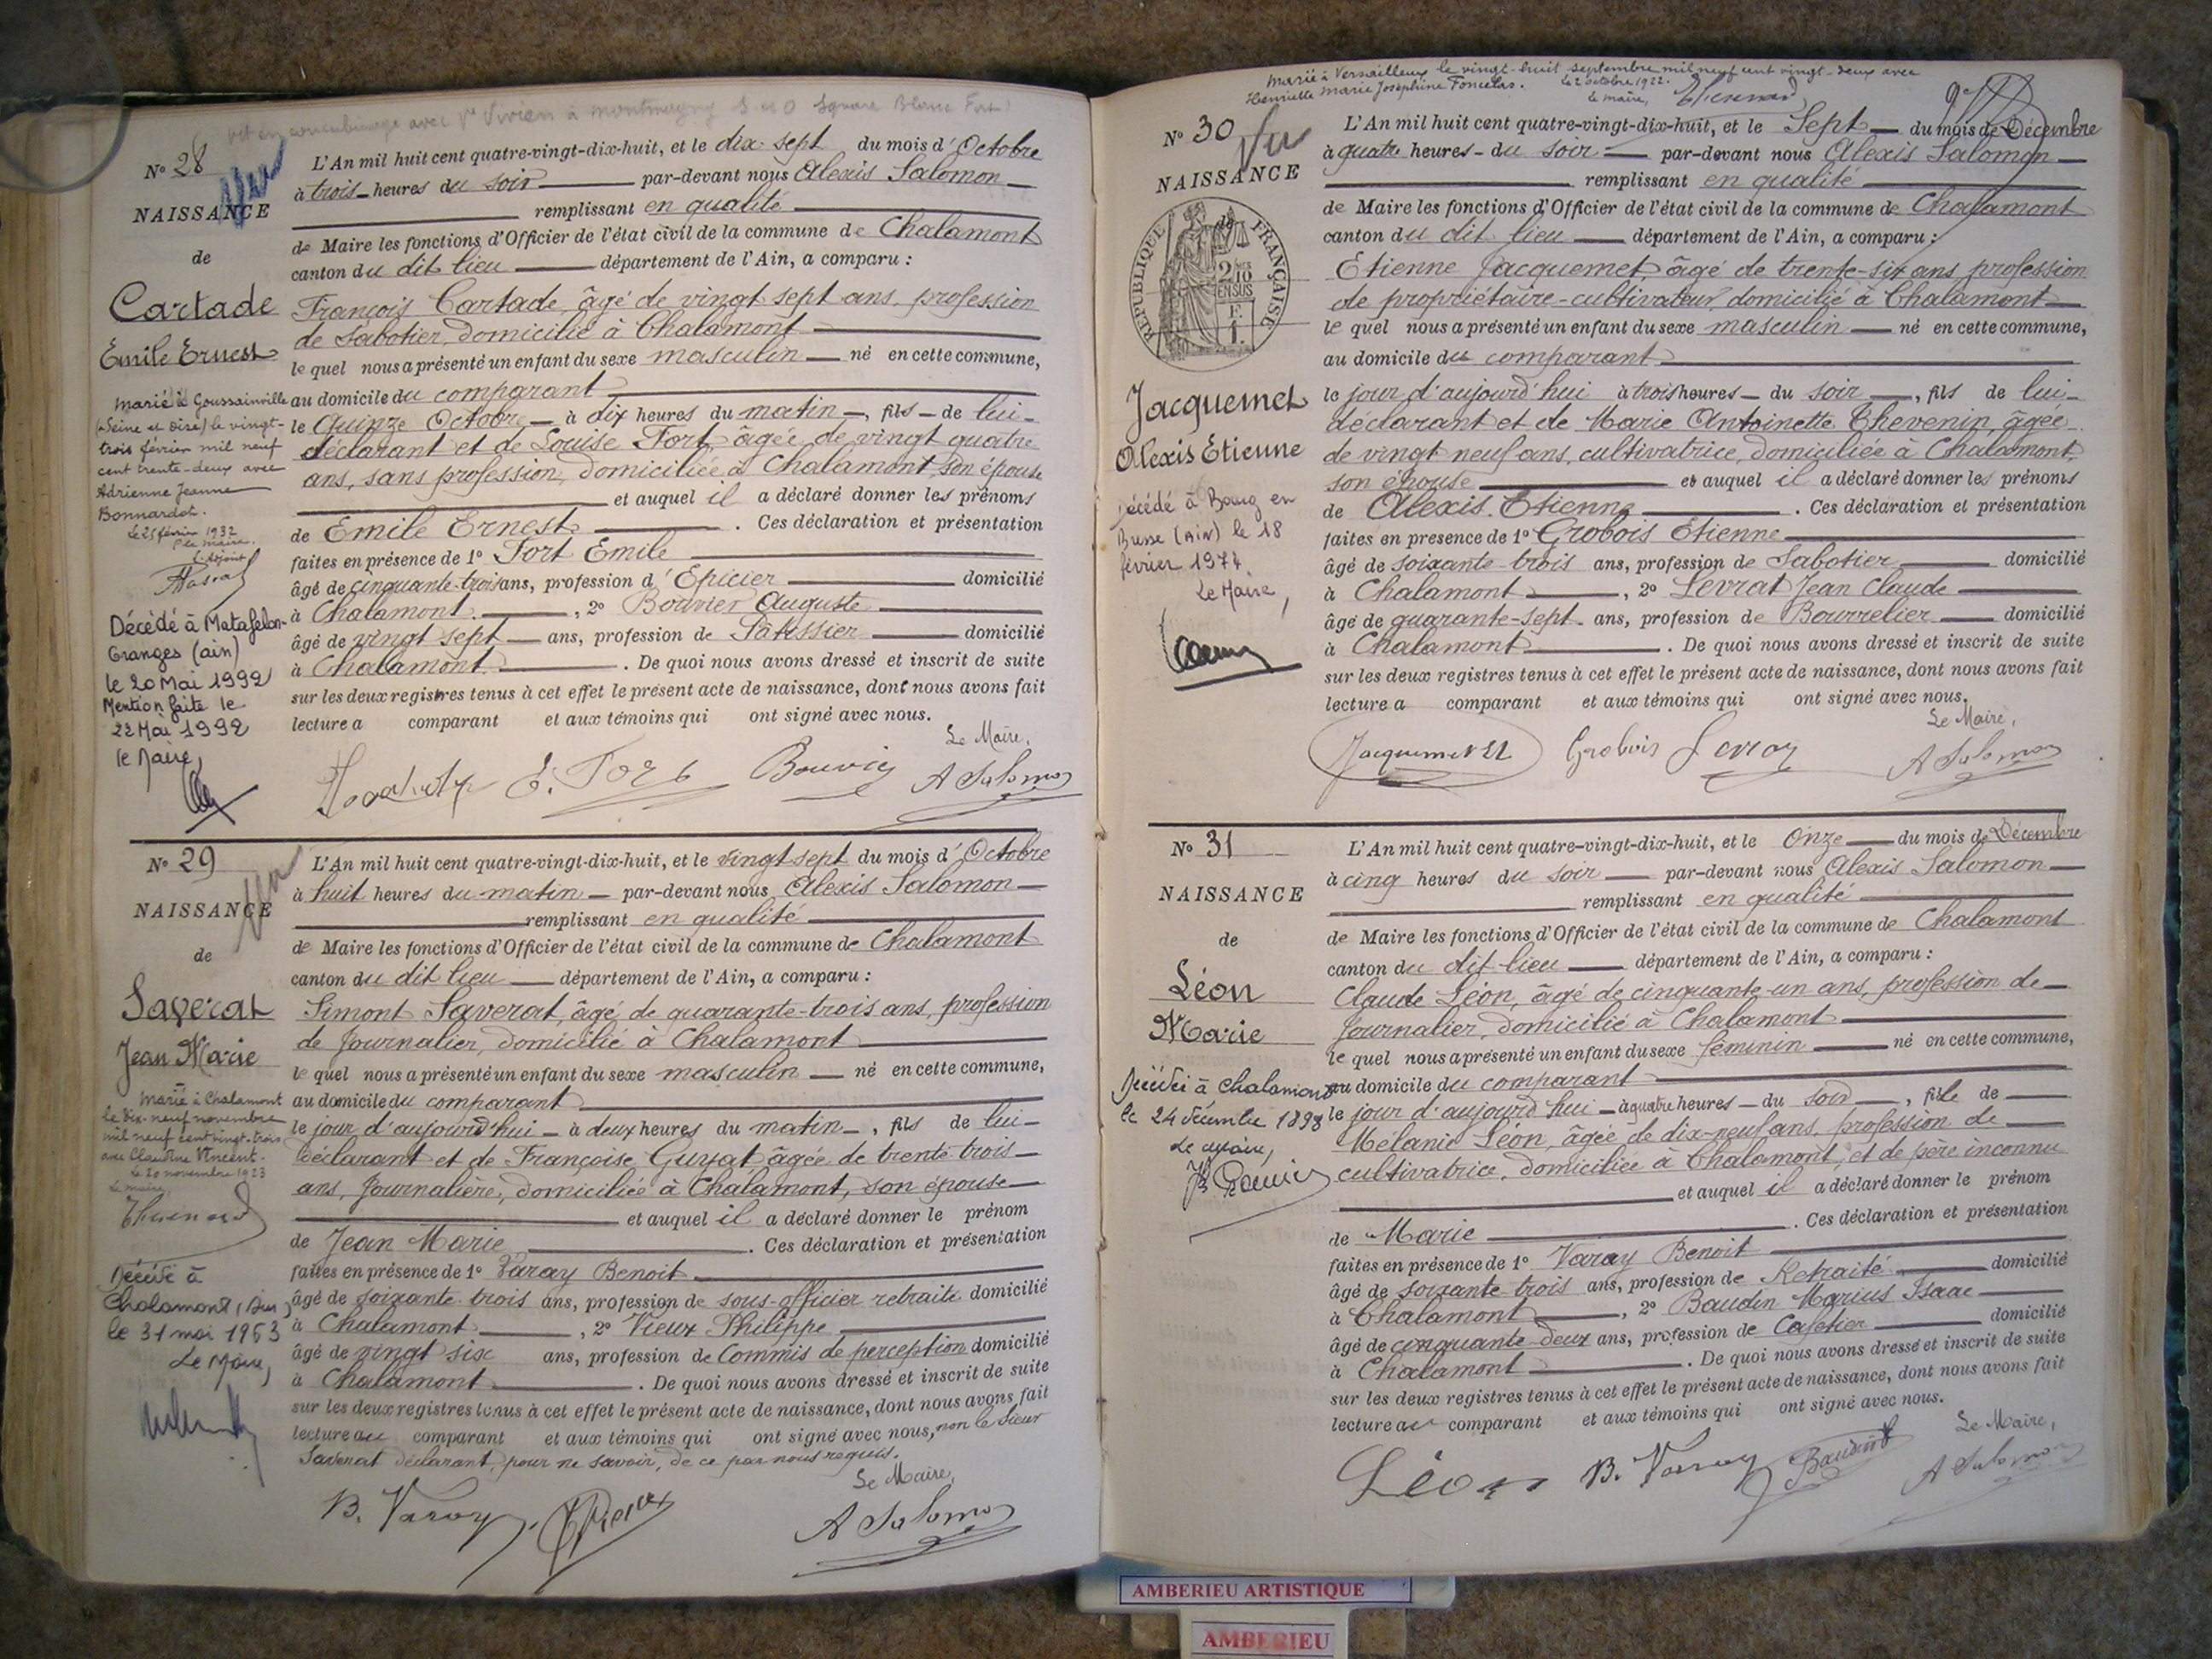 vit en concubinage avec Vve Vivien à Montmagny S et O Square Blanc Fort
N° 28
Vu
NAISSANCE
de
Cartade
Emile Ernest
marié à Goussainville
(Seine et Oise) le vingt-
trois février mil neuf
cent trente-deux avec
Adrienne Jeanne
Bonnardot.
Le 25 février 1932
P. le maire,
L'adjoint
Décédé à Matafelon-
Granges (ain)
le 20 Mai 1992
Mention faite le
22 Mai 1992
le Maire,
L'An mil huit cent quatre-vingt-dix-huit, et le dix-sept du mois d'Octobre
à trois heures du soir par-devant nous Alexis Salomon
remplissant en qualité
de Maire les fonctions d'Officier de l'état civil de la commune de Chalamont
canton du dit lieu département de l'Ain, a comparu :
François Cartade, âgé de vingt sept ans, profession
de Sabotier, domicilié à Chalamont
le quel nous a présenté un enfant du sexe masculin né en cette commune,
au domicile du comparant
le Quinze Octobre à dix heures du matin, fils de lui-
déclarant et de Louise Fort âgée de vingt quatre
ans, sans profession, domiciliée à Chalamont, son épouse
et auquel il a déclaré donner les prénoms
de Emile Ernest. Ces déclaration et présentation
faites en présence de 1° Fort Emile
âgé de cinquante-trois ans, profession d'Epicier domicilié
à Chalamont, 2° Bouvier Auguste
âgé de vingt sept ans, profession de Pâtissier domicilié
à Chalamont. De quoi nous avons dressé et inscrit de suite
sur les deux registres tenus à cet effet le présent acte de naissance, dont nous avons fait
lecture a comparant et aux témoins qui ont signé avec nous.
Le Maire,
E. Fort Bouvier A Salomon
N° 29
Vu
NAISSANCE
de
Saverat
Jean Marie
marié à Chalamont
le dix-neuf novembre
mil neuf cent vingt-trois
avec Claudine Vincent.
le 20 novembre 1923
Le maire,
Décédé à
Chalamont (Ain)
le 31 mai 1963
Le Maire,
L'An mil huit cent quatre-vingt-dix-huit, et le vingt-sept du mois d'Octobre
à huit heures du matin par-devant nous Alexis Salomon
remplissant en qualité
de Maire les fonctions d'Officier de l'état civil de la commune de Chalamont
canton du dit lieu département de l'Ain, a comparu :
Simont Saverat, âgé de quarante-trois ans, profession
de Journalier, domicilié à Chalamont
le quel nous a présenté un enfant du sexe masculin né en cette commune,
au domicile du comparant
le jour d'aujourd'hui à deux heures du matin, fils de lui-
déclarant et de Françoise Guyat âgée de trente trois
ans, Journalière, domiciliée à Chalamont, son épouse
et auquel il a déclaré donner le prénom
de Jean Marie. Ces déclaration et présentation
faites en présence de 1° Varay Benoit
âgé de soixante trois ans, profession de sous-officier retraité domicilié
à Chalamont, 2° Vieux Philippe
âgé de vingt six ans, profession de Commis de perception domicilié
à Chalamont. De quoi nous avons dressé et inscrit de suite
sur les deux registres tenus à cet effet le présent acte de naissance, dont nous avons fait
lecture au comparant et aux témoins qui ont signé avec nous, non le sieur
Saverat déclarant, pour ne savoir, de ce par nous requis.
Le Maire,
B. Varay A Salomon
marié à Versailleux le vingt-huit septembre mil neuf cent vingt-deux avec
Henriette Marie Joséphine Foncelas. le 2 octobre 1922.
le maire,
N° 30
Vu
NAISSANCE
RÉPUBLIQUE FRANÇAISE
2/10
EN SUS
F.
1.
Jacquemet
Alexis Etienne
Décédé à Bourg en
Bresse (Ain) le 18
février 1974.
Le Maire,
L'An mil huit cent quatre-vingt-dix-huit, et le Sept du mois de Décembre
à quatre heures du soir par-devant nous Alexis Salomon
remplissant en qualité
de Maire les fonctions d'Officier de l'état civil de la commune de Chalamont
canton du dit lieu département de l'Ain, a comparu :
Etienne Jacquemet, âgé de trente-six ans profession
de propriétaire-cultivateur, domicilié à Chalamont
le quel nous a présenté un enfant du sexe masculin né en cette commune,
au domicile du comparant
le jour d'aujourd'hui à trois heures du soir, fils de lui-
déclarant et de Marie Antoinette Thevenin, âgée
de vingt neuf ans, cultivatrice, domiciliée à Chalamont,
son épouse et auquel il a déclaré donner les prénoms
de Alexis Etienne. Ces déclaration et présentation
faites en présence de 1° Grobois Etienne
âgé de soixante-trois ans, profession de Sabotier domicilié
à Chalamont, 2° Levrat Jean Claude
âgé de quarante-sept ans, profession de Bourrelier domicilié
à Chalamont. De quoi nous avons dressé et inscrit de suite
sur les deux registres tenus à cet effet le présent acte de naissance, dont nous avons fait
lecture a comparant et aux témoins qui ont signé avec nous.
Le Maire,
Jacquemet Grobois Levrat A Salomon
N° 31
NAISSANCE
de
Léon
Marie
Décédée à Chalamont
le 24 décembre 1898
Le Maire,
L'An mil huit cent quatre-vingt-dix-huit, et le Onze du mois de Décembre
à cinq heures du soir par-devant nous Alexis Salomon
remplissant en qualité
de Maire les fonctions d'Officier de l'état civil de la commune de Chalamont
canton du dit lieu département de l'Ain, a comparu :
Claude Léon, âgé de cinquante-un ans, profession de
Journalier, domicilié à Chalamont
le quel nous a présenté un enfant du sexe féminin né en cette commune,
au domicile du comparant
le jour d'aujourd'hui à quatre heures du soir, fille de
Mélanie Léon, âgée de dix-neuf ans, profession de
cultivatrice, domiciliée à Chalamont, et de père inconnu
et auquel il a déclaré donner le prénom
de Marie. Ces déclaration et présentation
faites en présence de 1° Varay Benoit
âgé de soixante-trois ans, profession de Retraité domicilié
à Chalamont, 2° Baudin Marius Isaac
âgé de cinquante deux ans, profession de Cafetier domicilié
à Chalamont. De quoi nous avons dressé et inscrit de suite
sur les deux registres tenus à cet effet le présent acte de naissance, dont nous avons fait
lecture au comparant et aux témoins qui ont signé avec nous.
Le Maire,
Léon B. Varay Baudin A Salomon
AMBERIEU ARTISTIQUE
AMBERIEU